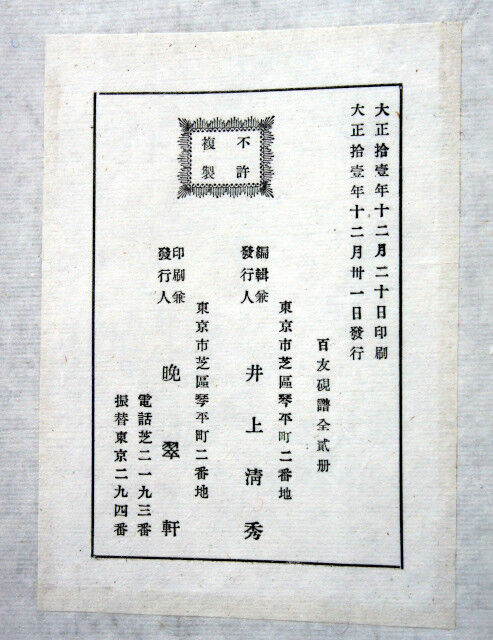 大正拾壹年十二月二十日印刷
大正拾壹年十二月卅一日發行
百友硯譜全貳册
不許
複製
東京市芝區琴平町二番地
編輯兼
發行人
井上清秀
東京市芝區琴平町二番地
印刷兼
發行人
晩翠軒
電話芝二一九三番
振替東京二九四番